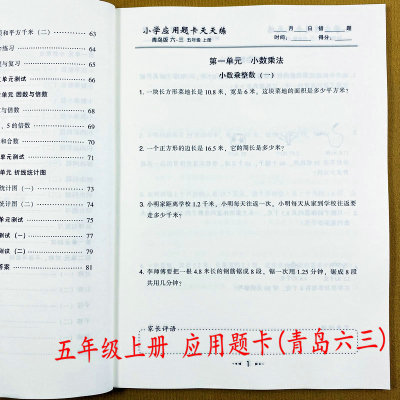 项和平方千米（二） 63
合练习 64
理与复习 66
单元测试 67
单元 因数与倍数
与倍数 68
、5的倍数 69
和合数 70
单元测试 71
单元 折线统计图
统计图（一） 73
统计图（二） 74
单元测试 75
测试（一） 77
测试（二） 79
答案 81
小学应用题卡天天练
青岛版 六·三 五年级 上册
月 日 错 题
时间： 得分：
第一单元 小数乘法
小数乘整数（一）
1. 一块长方形菜地长是10.8米，宽是6米，这块菜地的面积是多少平方米？
2. 一个正方形的边长是16.5米，它的周长是多少米？
3. 小明家距离学校1.2千米，小明每天往返一次，小明每天从家到学校往返要
走多少千米？
4. 李师傅要把一根4.8米长的钢筋锯成8段，锯一次用1.25分钟，锯成8段
共用几分钟？
家长评语：
五年级上册 应用题卡(青岛六三)
1